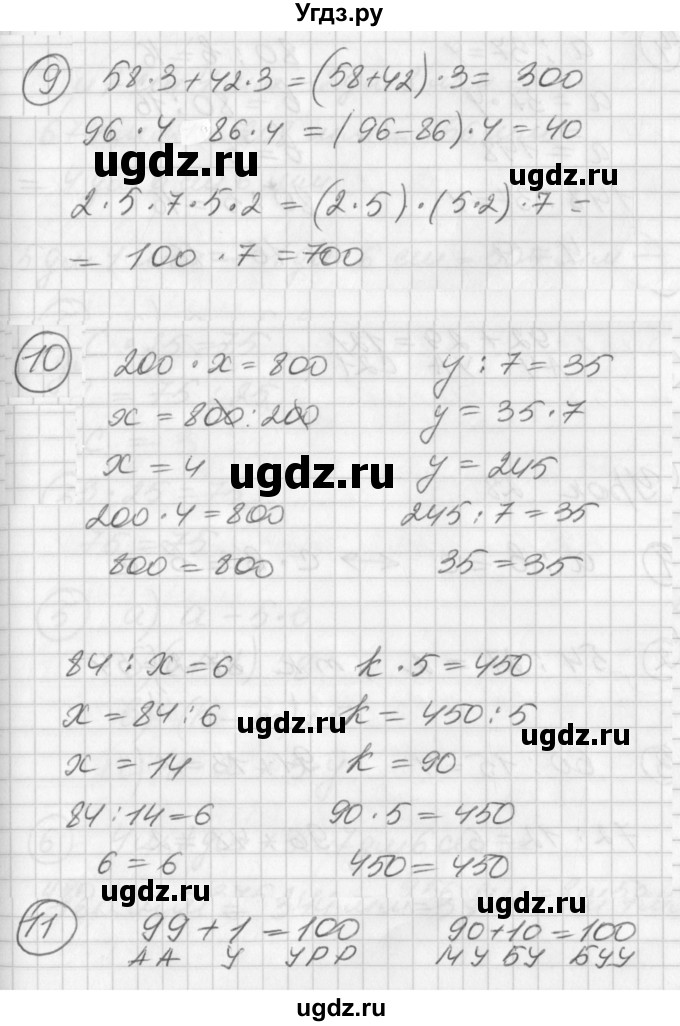 Угдз.ру
9 58·3+42·3=(58+42)·3= 300
96·4 86·4=(96-86)·4=40
ugdz.ru ugdz.ru
2·5·7·5·2=(2·5)·(5·2)·7=
= 100·7=700
10 200·x=800 y:7=35
x=800:200 y=35·7
x=4 ugdz.ru y=245
200·4=800 245:7=35
800=800 35=35
84:x=6 k·5=450
x=84:6 ugdz.ru k=450:5 ugdz.ru
x=14 k=90
84:14=6 90·5=450
6=6 450=450
ugdz.ru ugdz.ru
11 99+1=100 90+10=100
АА У УРР МУ БУ БУУ
ugdz.ru